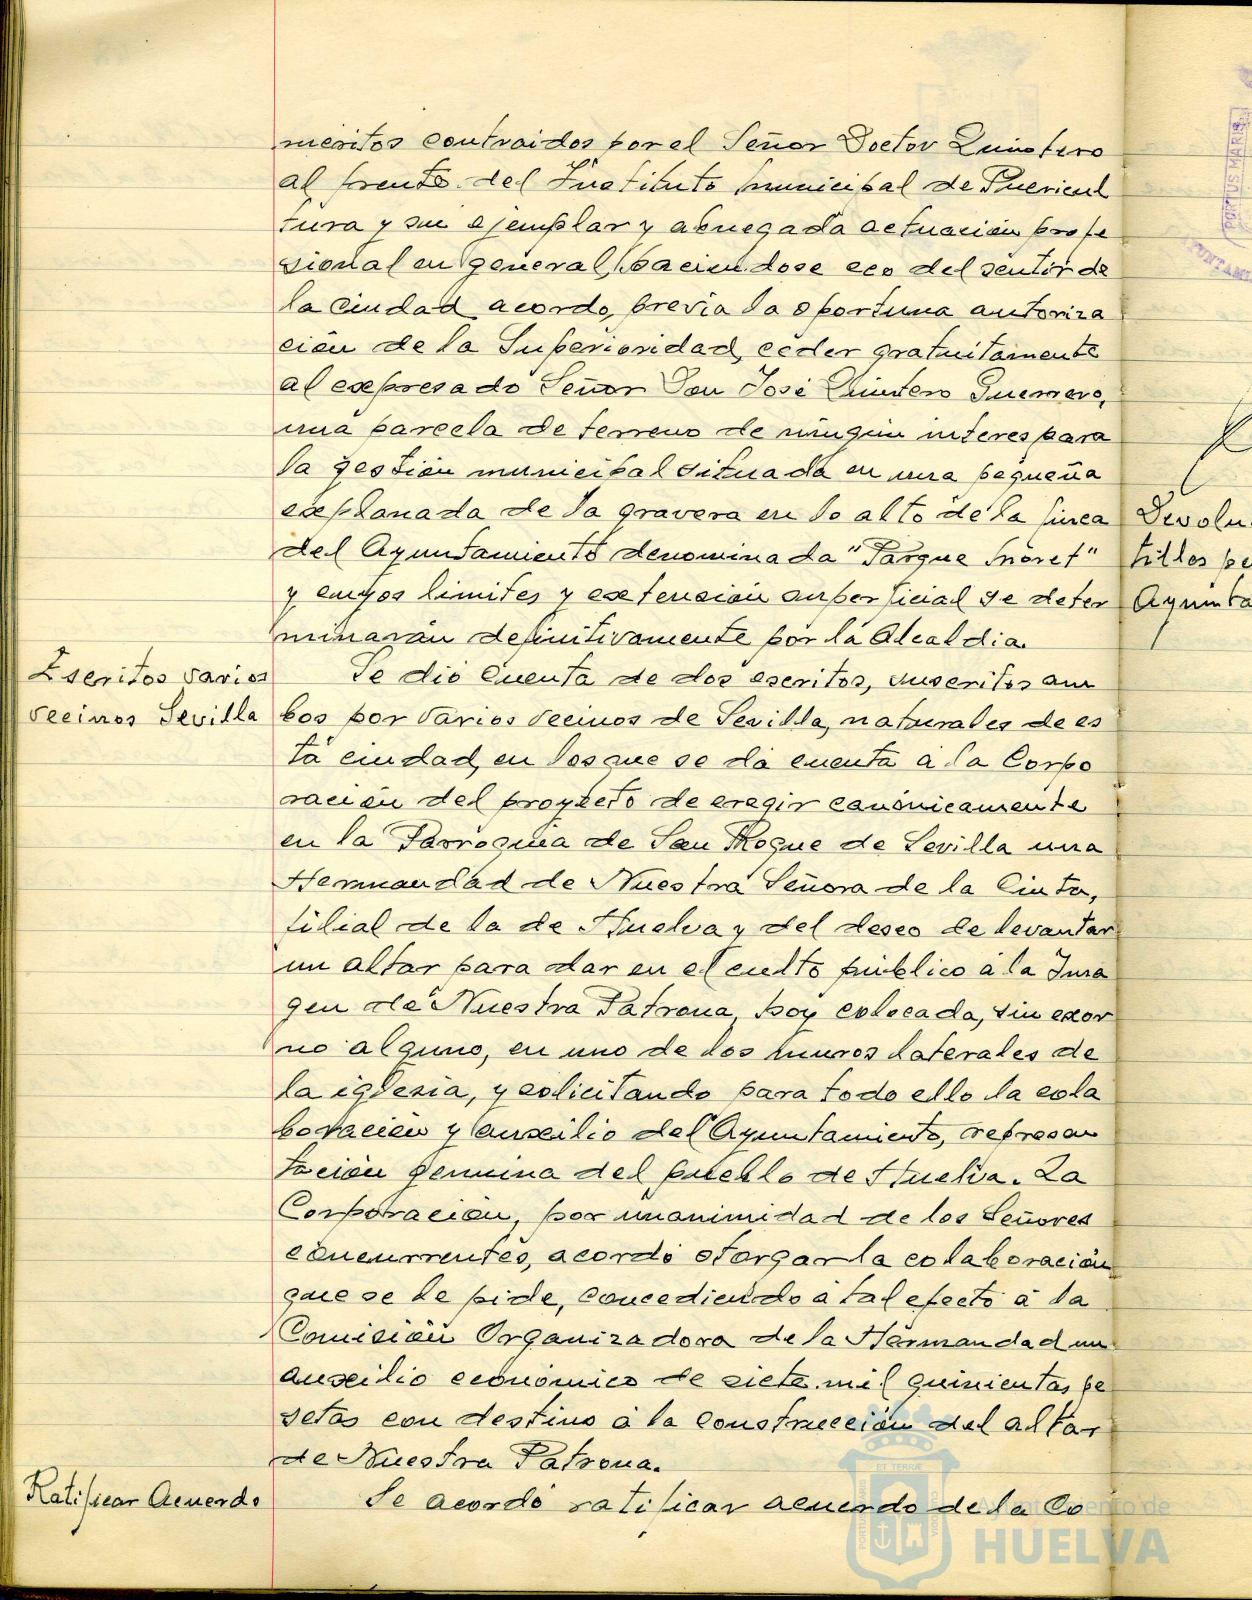 meritos contraidos por el Señor Doctor Quintero
al frente del Instituto Municipal de Puericul
tura y su ejemplar y abnegada actuación profe
sional en general, haciendose eco del sentir de
la ciudad acordo, previa la oportuna autoriza
ción de la Superioridad, ceder gratuitamente
al expresado Señor Don José Quintero Guerrero,
una parcela de terreno de ningún interes para
la gestión municipal situada en una pequeña
explanada de la gravera en lo alto de la finca
del Ayuntamiento denominada "Parque Moret"
y cuyos limites y extensión superficial se deter
minarán definitivamente por la Alcaldia.
Escritos varios
vecinos Sevilla
Se dió cuenta de dos escritos, suscritos am
bos por varios vecinos de Sevilla, naturales de es
ta ciudad, en los que se dá cuenta á la Corpo
ración del proyecto de eregir canónicamente
en la Parroquia de San Roque de Sevilla una
Hermandad de Nuestra Señora de la Cinta,
filial de la de Huelva y del deseo de levantar
un altar para dar en el culto público á la Ima
gen de Nuestra Patrona, hoy colocada, sin exor
no alguno, en uno de los muros laterales de
la iglesia, y solicitando para todo ello la cola
boración y auxilio del Ayuntamiento, represen
tación genuina del pueblo de Huelva. La
Corporación, por unanimidad de los Señores
concurrentes, acordó otorgar la colaboración
que se le pide, concediendo á tal efecto á la
Comisión Organizadora de la Hermandad un
auxilio económico de siete mil quinientas pe
setas con destino á la construcción del altar
de Nuestra Patrona.
Ratificar Acuerdo
Se acordó ratificar acuerdo de la Co
Devolu
tillos pe
Ayunta
PORTUS MARIS
Ayuntamiento de
HUELVA